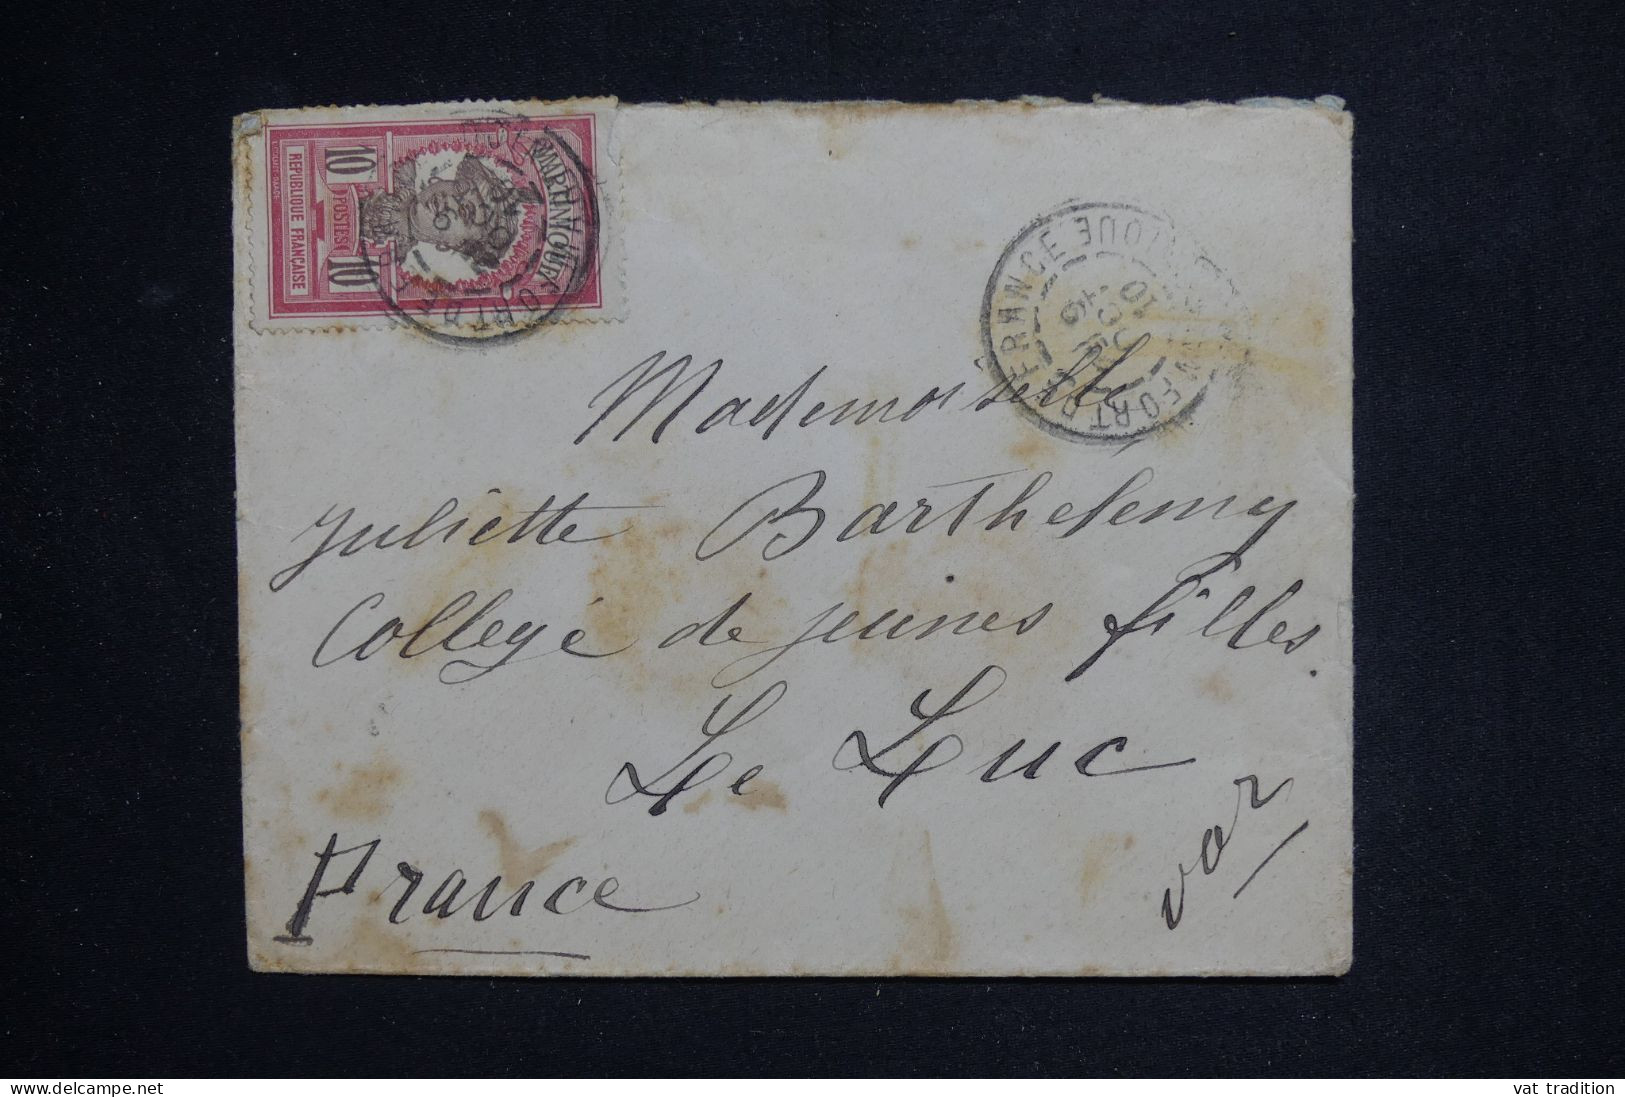 10
POSTES
10
REPUBLIQUE FRANÇAISE
MARTINIQUE
FORT DE FRANCE
Mademoiselle
Juliette Barthelemy
Collegé de jeunes filles.
Le Luc
Var
France
www.delcampe.net
vat tradition